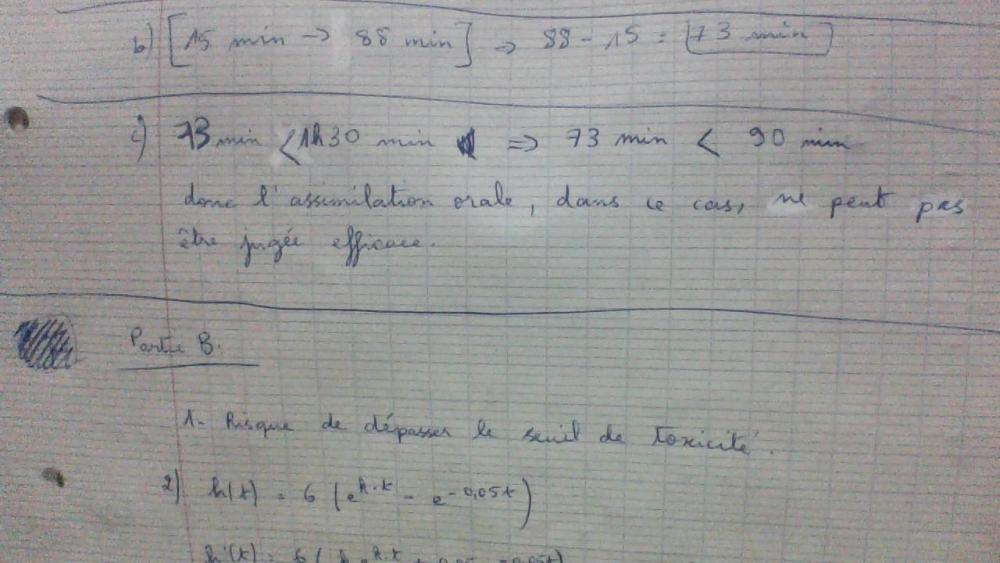 b) [15 min -> 88 min] => 88 - 15 = 73 min
c) 73 min < 1h30 min => 73 min < 90 min
donc l'assimilation orale, dans ce cas, ne peut pas
être jugée efficace.
Partie B.
1- Risque de dépasser le seuil de toxicité.
2) h(t) = 6 (e^k.t - e^-0,05t)
h'(t) = 6 (